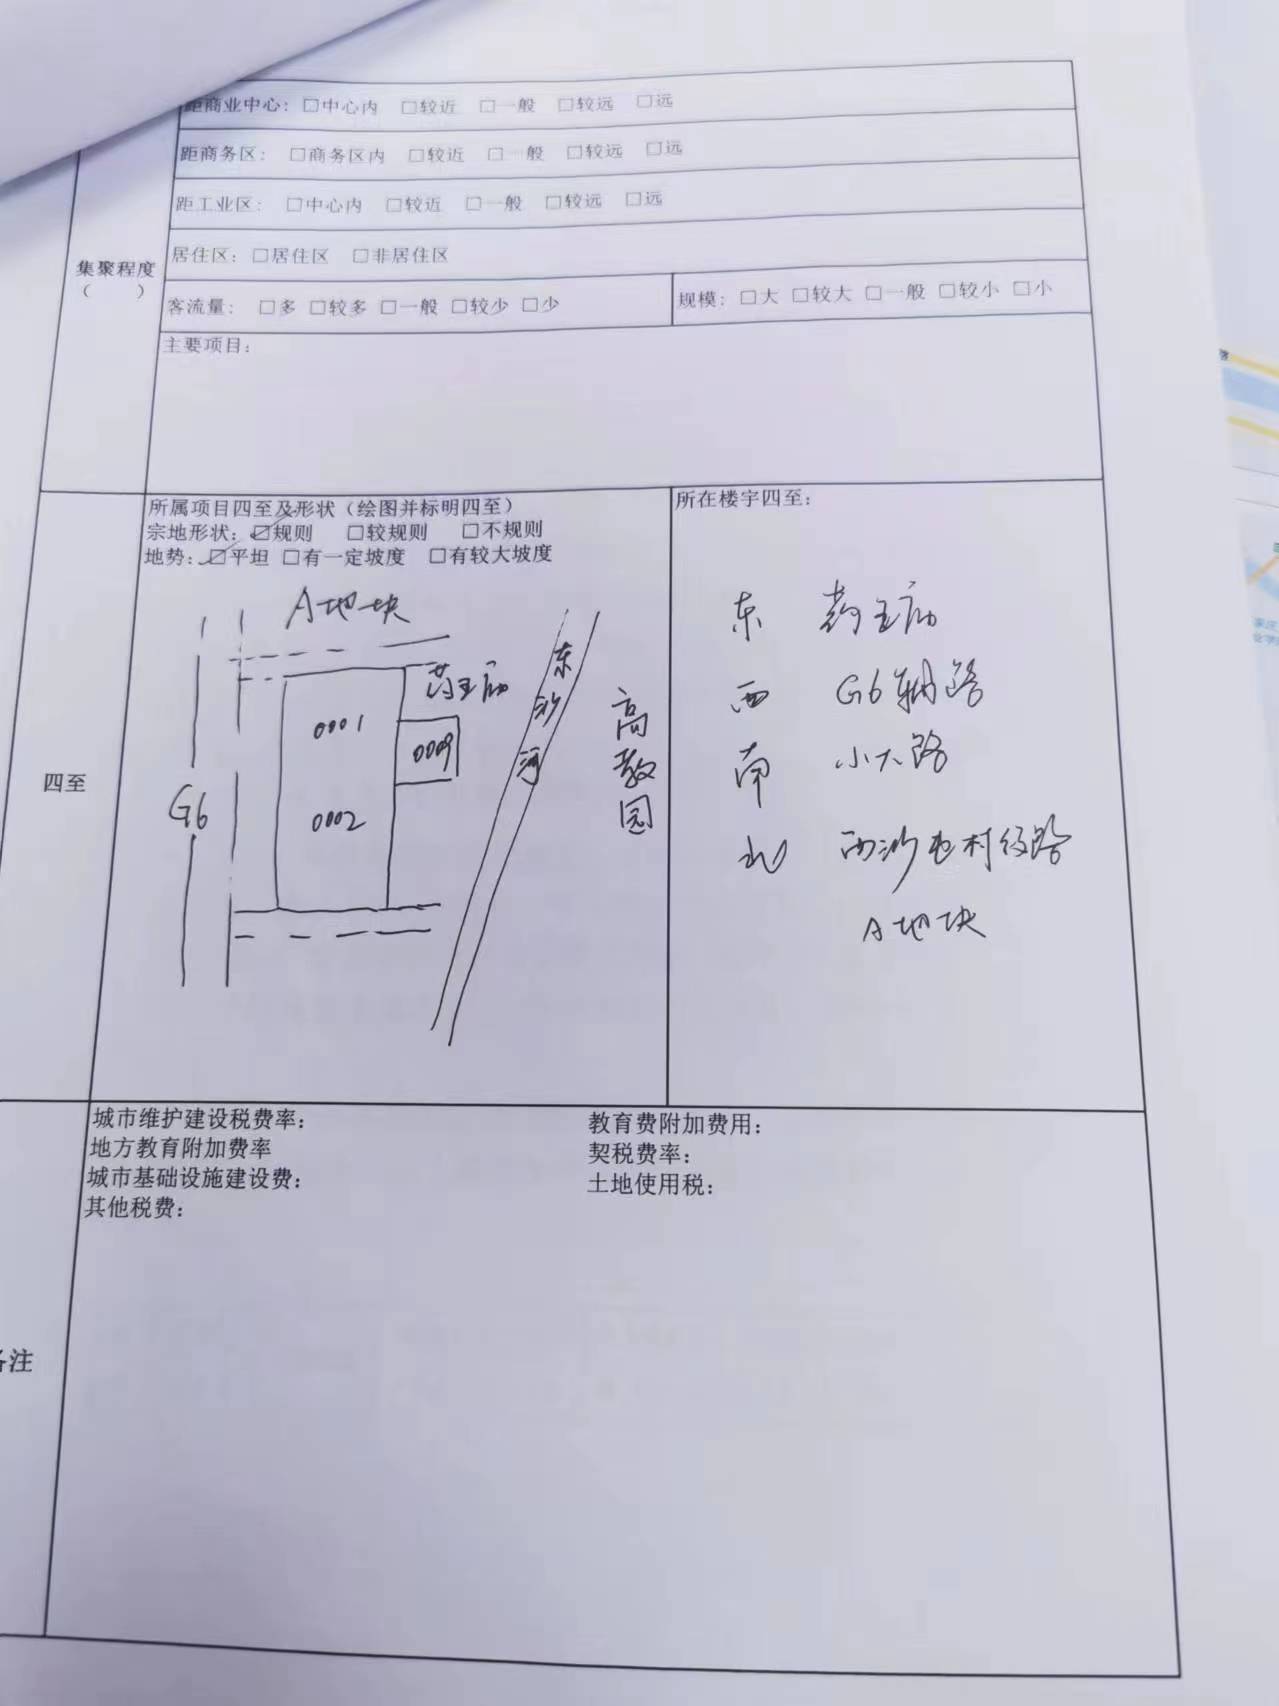 距商业中心：□中心内 □较近 □一般 □较远 □远
距商务区：□商务区内 □较近 □一般 □较远 □远
距工业区：□中心内 □较近 □一般 □较远 □远
居住区：□居住区 □非居住区
集聚程度
（ ）
客流量：□多 □较多 □一般 □较少 □少
规模：□大 □较大 □一般 □较小 □小
主要项目：
四至
所属项目四至及形状（绘图并标明四至）
宗地形状：☑规则 □较规则 □不规则
地势：☑平坦 □有一定坡度 □有较大坡度
A地块
药王庙
0001
0009
0002
G6
东沙河
高教园
所在楼宇四至：
东 药王庙
西 G6辅路
南 小大路
北 西沙屯村级路
A地块
备注
城市维护建设税费率：
教育费附加费用：
地方教育附加费率
契税费率：
城市基础设施建设费：
土地使用税：
其他税费：